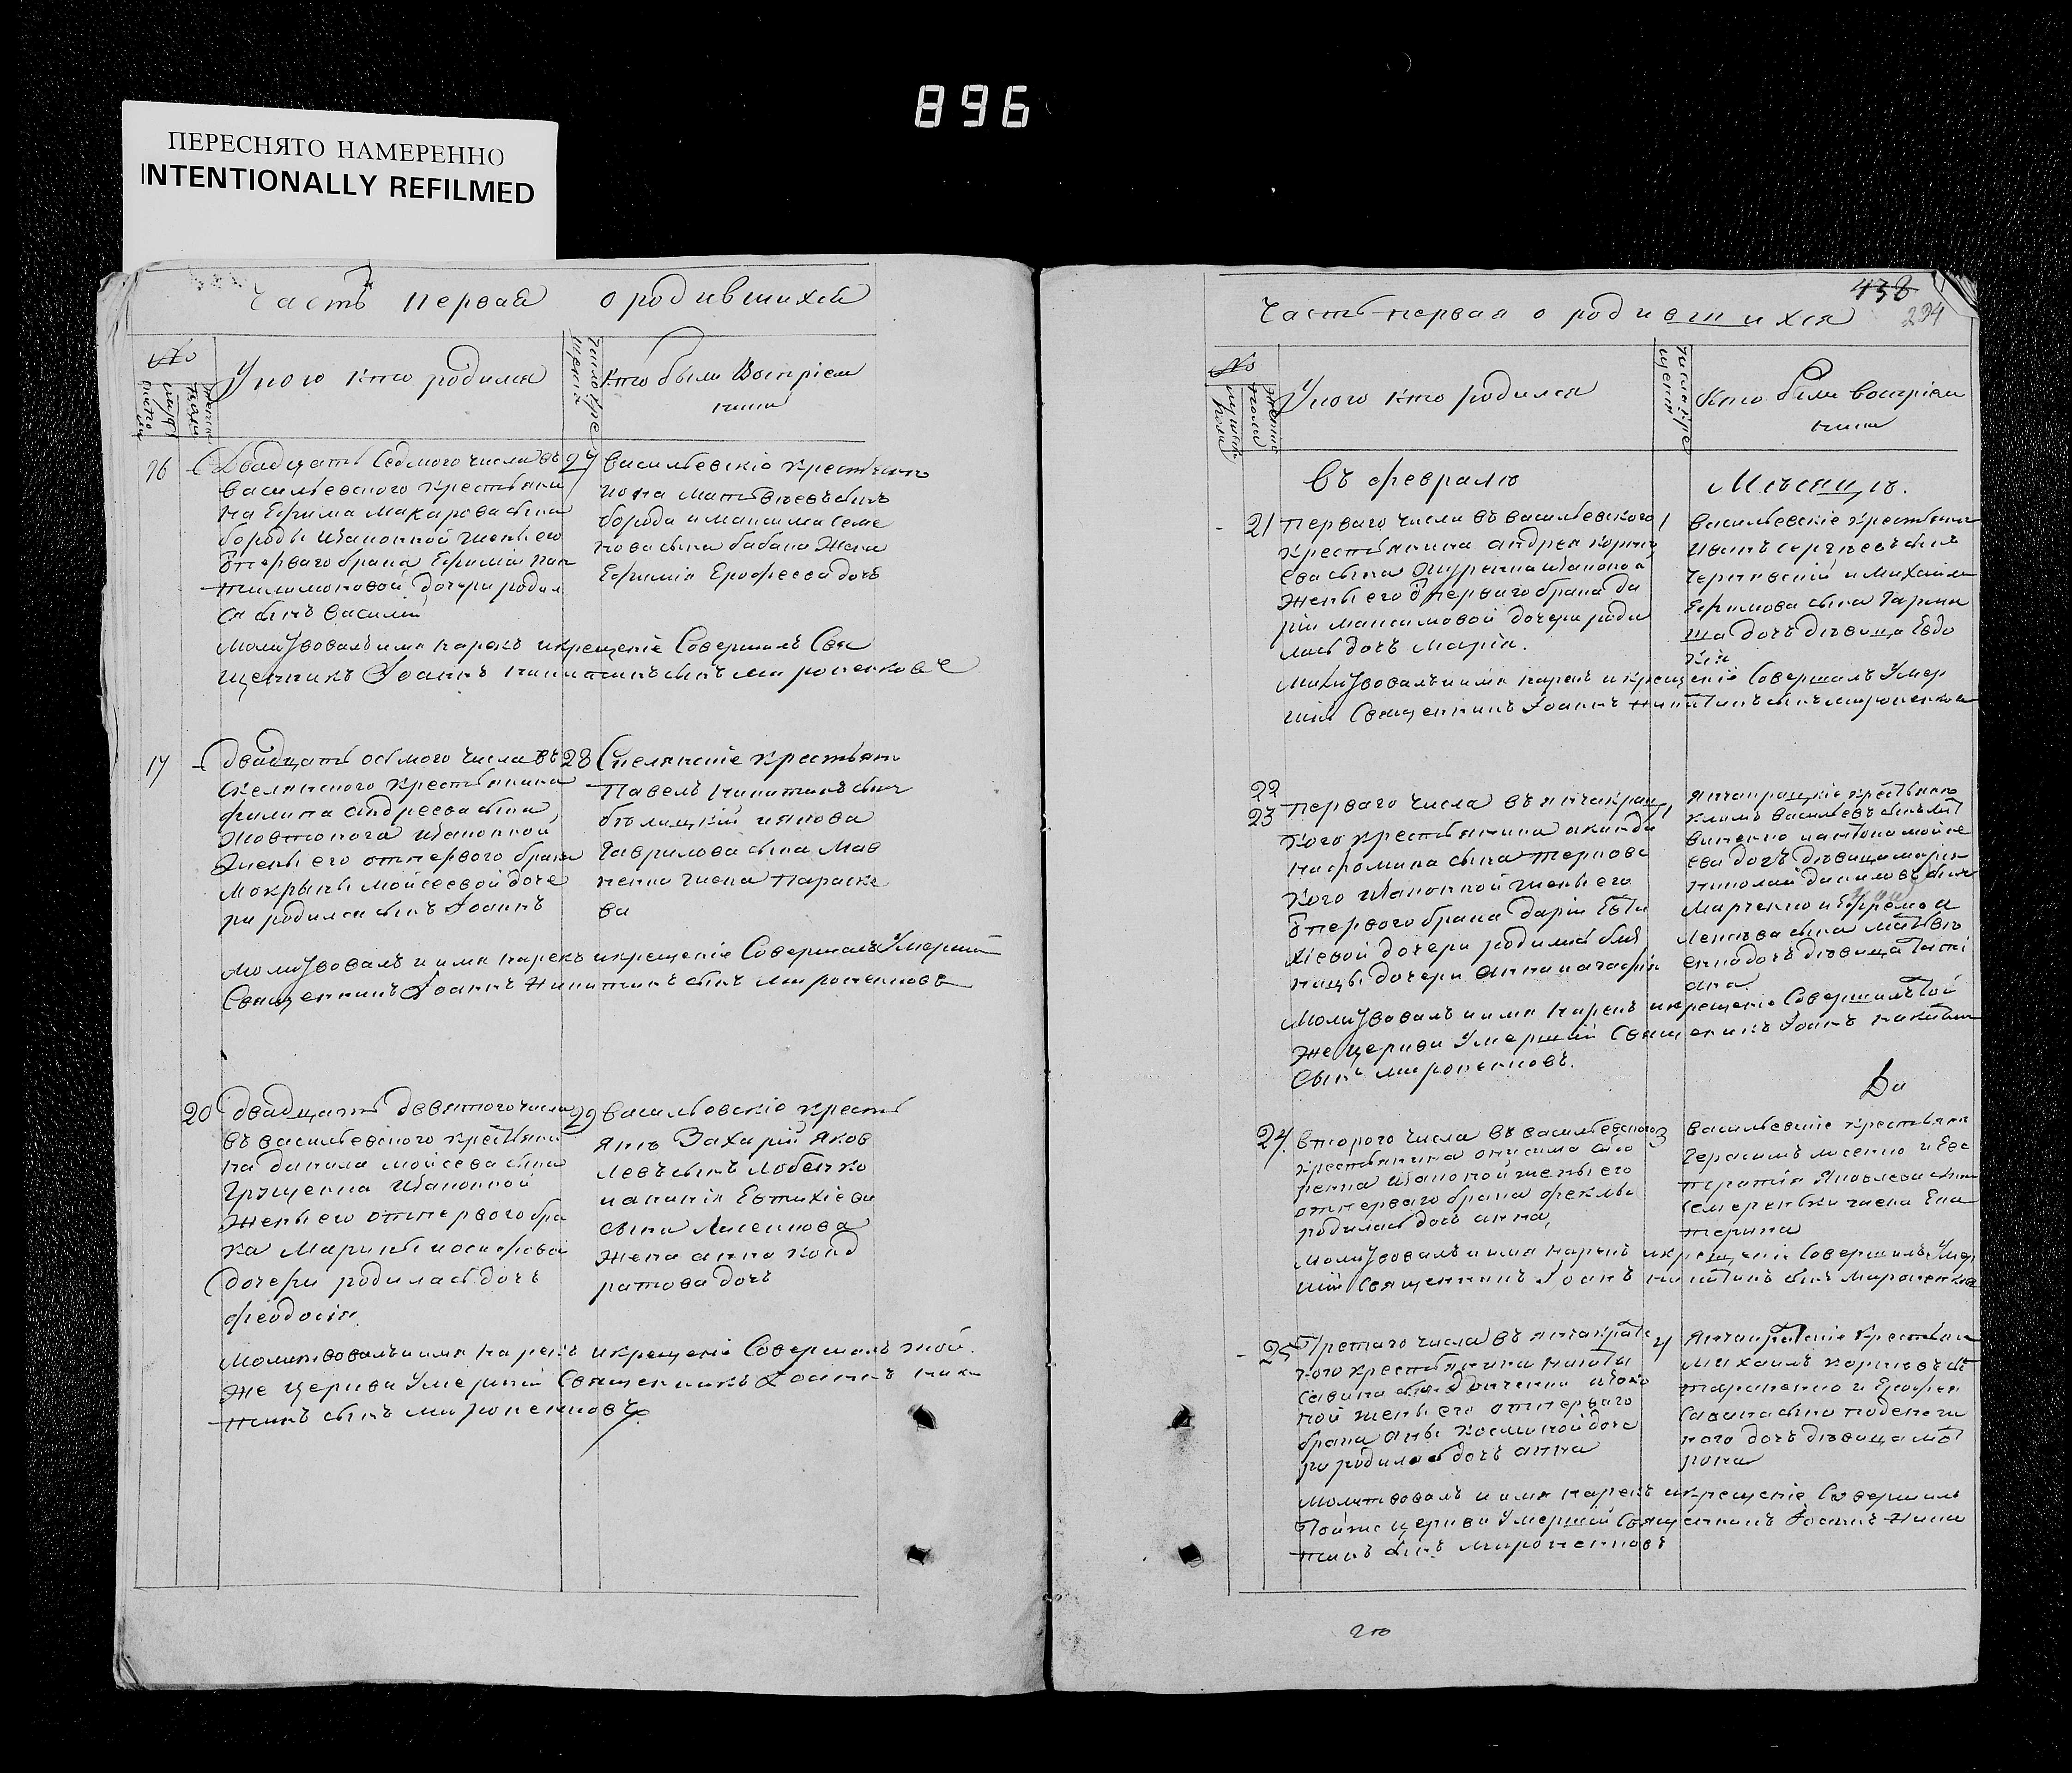 896
ПЕРЕСНЯТО НАМЕРЕННО
INTENTIONALLY REFILMED
Часть первая о родившихся
№
У кого кто родился
Кто были Воспріем
ники
16
Двадцать Седмого числа въ
васильевского крестьяни
на Ефима Макарова сына
бороды изаконной жены его
первого брака Ефиміи
дочери родил
ся сынъ Василій
27
васильевскіе
сынъ
борода и Максима Семе
нова сына бабака Жена
Ефимія Ерофеева дочь
Молитвовалъ имя нарекъ и крещеніе Совершилъ Свя
щенникъ Іоаннъ Никитинъ сынъ Мироненковъ
17
Двадцать осьмого числа въ
Скелянского крестьянина
филипа андреева сына
изаконной
жены его отпервого брака
Мокрыны Мойсеевой доче
ри родился сынъ Іоаннъ
28
Скелянскіе крестьян
Павелъ Никитинъ сынъ
бѣлицкій иякова
Гаврилова сына Мав
ненка жена Параске
ва
Молитвовалъ и имя нарекъ икрещеніе Совершалъ Умершій
Священникъ Іоаннъ Никитинъ сынъ Мироненковъ
20
Двадцать девятого числа
въ васильевского крестьяни
на данила мойсева сына
Грущенка изаконной
жены его отпервого бра
ка Марины иосифовой
дочери родилась дочь
феодосія
29
васильовскіе кресть
яне Захарій Яков
левъ сынъ Лобенко
иананія Евтихіева
сына Лисенкова
жена анна конд
ратова дочь
Молитвовалъ имя нарекъ икрещеніе Совершилъ той
же церкви Умершій Священникъ Іоаннъ Ники
тинъ сынъ мироненковъ
438
224
Часть первая о родившихся
№
У кого кто родился
Кто были воспріем
ники
въ февралѣ
Мѣсяцѣ.
21
первого числа въ васильевского
крестьянина андрея
сына изаконной
жены его первого брака да
ріи максимовой дочери роди
лась дочь Марія.
1
васильевскіе крестьяни
Иванъ сергѣевъ сынъ
Чернявскій и Михайла
Ефимова сына
дочь дѣвица Евдо
кія
Молитвовалъ и имя нарекъ и крещеніе Совершалъ Умер
шій Священникъ Іоаннъ Никитинъ сынъ мироненков
22
23
первого числа въ янчакрац
кого крестьянина акинди
на фомина сына тернов
кого изаконной жены его
первого брака даріи Евти
хіевой дочери родились близ
ницы дочери Анна иагафія
1
Янчакрацкіе крестьяне
климъ васильевъ сынъ
мойсе
ева дочь дѣвица марія
николай даниловъ сынъ
Марченко и Ефрема а
лексѣева сына матвѣ
енко дочь дѣвица Тати
ана
Молитвовалъ и имя нарекъ икрещеніе Совершилъ той
же церкви Умершій Священникъ Іоанъ Никитин
Сынъ мироненковъ.
24.
второго числа въ васильевского
крестьянина онисима
изаконой жены его
отпервого брака феклы
родилась дочь анна,
3
васильевскіе крестьяни
Герасимъ лисенко и Евс
тратія Яковлева сына
Семеренька жена Ека
терина
Молитвовалъ и имя нарекъ икрещеніе Совершилъ Умер
шій Священникъ Іоанъ Никитинъ сынъ Мироненков
25
Третяго числа въ янчакрац
кого крестьянина никиты
савина сына изако
ной жены его отпервого
брака Анны Косминой доче
ри родилась дочь анна
4
Янчакрацкіе крестьян
Михаилъ
тараненко и Ерофея
Савина сына
ного дочь дѣвица мот
рона
Молитвовалъ и имя нарекъ икрещеніе Совершилъ
Тойже церкви Умершій Священникъ Іоаннъ Ники
тинъ сынъ мироненковъ